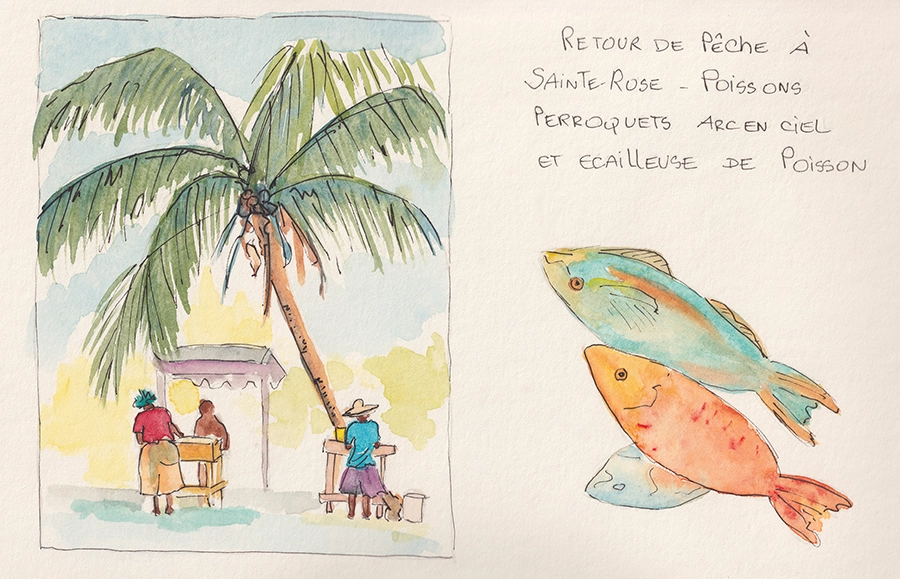 RETOUR DE PÊCHE À
SAINTE-ROSE - POISSONS
PERROQUETS ARC EN CIEL
ET ECAILLEUSE DE POISSON